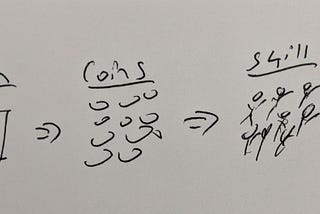 Coins
skill